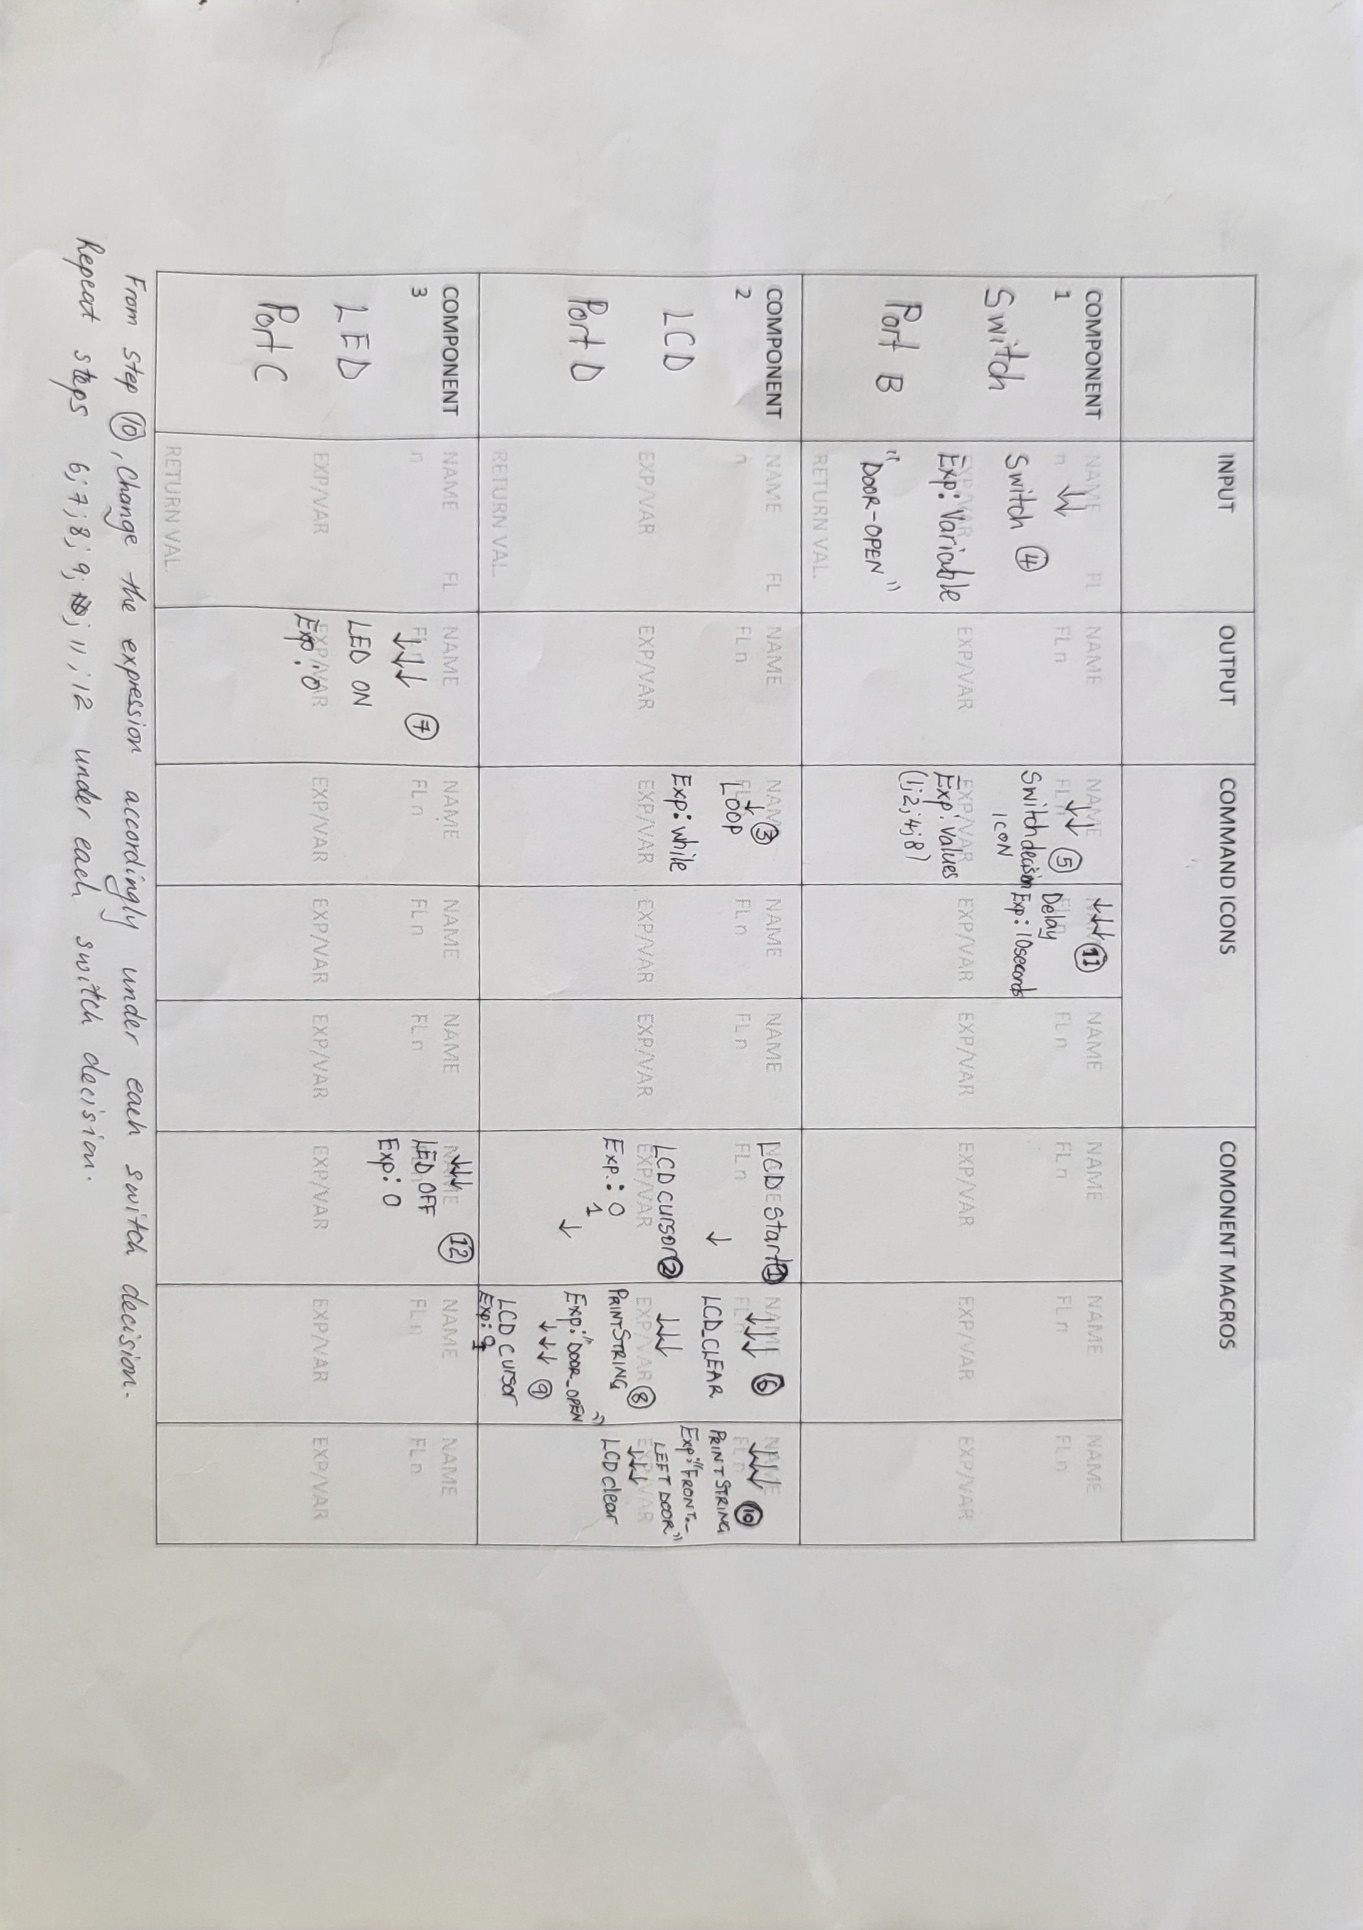 INPUT
OUTPUT
COMMAND ICONS
COMONENT MACROS
COMPONENT
1
Switch
Port B
NAME FL
n ↓↓
Switch ④
EXP/VAR
Exp: Variable
"DOOR-OPEN"
RETURN VAL.
NAME
FL n
EXP/VAR
NAME
FL n
↓↓ ⑤
Switch decision
ICON
EXP/VAR
Exp: Values
(1; 2; 4; 8)
↓↓↓ ⑪
Delay
Exp: 10seconds
EXP/VAR
NAME
FL n
EXP/VAR
NAME
FL n
EXP/VAR
NAME
FL n
EXP/VAR
NAME
FL n
EXP/VAR
COMPONENT
2
LCD
Port D
NAME FL
n
EXP/VAR
RETURN VAL.
NAME
FL n
EXP/VAR
NAME
↓ ③
LOOP
Exp: while
EXP/VAR
NAME
FL n
EXP/VAR
NAME
FL n
EXP/VAR
LCD Start ①
FL n
↓
LCD cursor ②
EXP/VAR
Exp.: 0
1
↓
NAME
↓↓↓ ⑥
LCD_CLEAR
↓↓↓
EXP/VAR ⑧
PRINTSTRING
Exp:"DOOR_OPEN"
↓↓↓ ⑨
LCD cursor
Exp: 0
1
NAME
↓↓↓ ⑩
PRINTSTRING
Exp:"FRONT-
LEFT DOOR"
EXP/VAR
↓↓↓
LCD clear
COMPONENT
3
LED
Port C
NAME FL
n
EXP/VAR
RETURN VAL.
NAME
FL n
↓↓↓ ⑦
LED ON
EXP/VAR
Exp: 0
NAME
FL n
EXP/VAR
NAME
FL n
EXP/VAR
NAME
FL n
EXP/VAR
NAME
↓↓↓ ⑫
LED OFF
Exp: 0
EXP/VAR
NAME
FL n
EXP/VAR
NAME
FL n
EXP/VAR
From step ⑩, Change the expression accordingly under each switch decision.
Repeat steps 6; 7; 8; 9; 11; 12 under each switch decision.